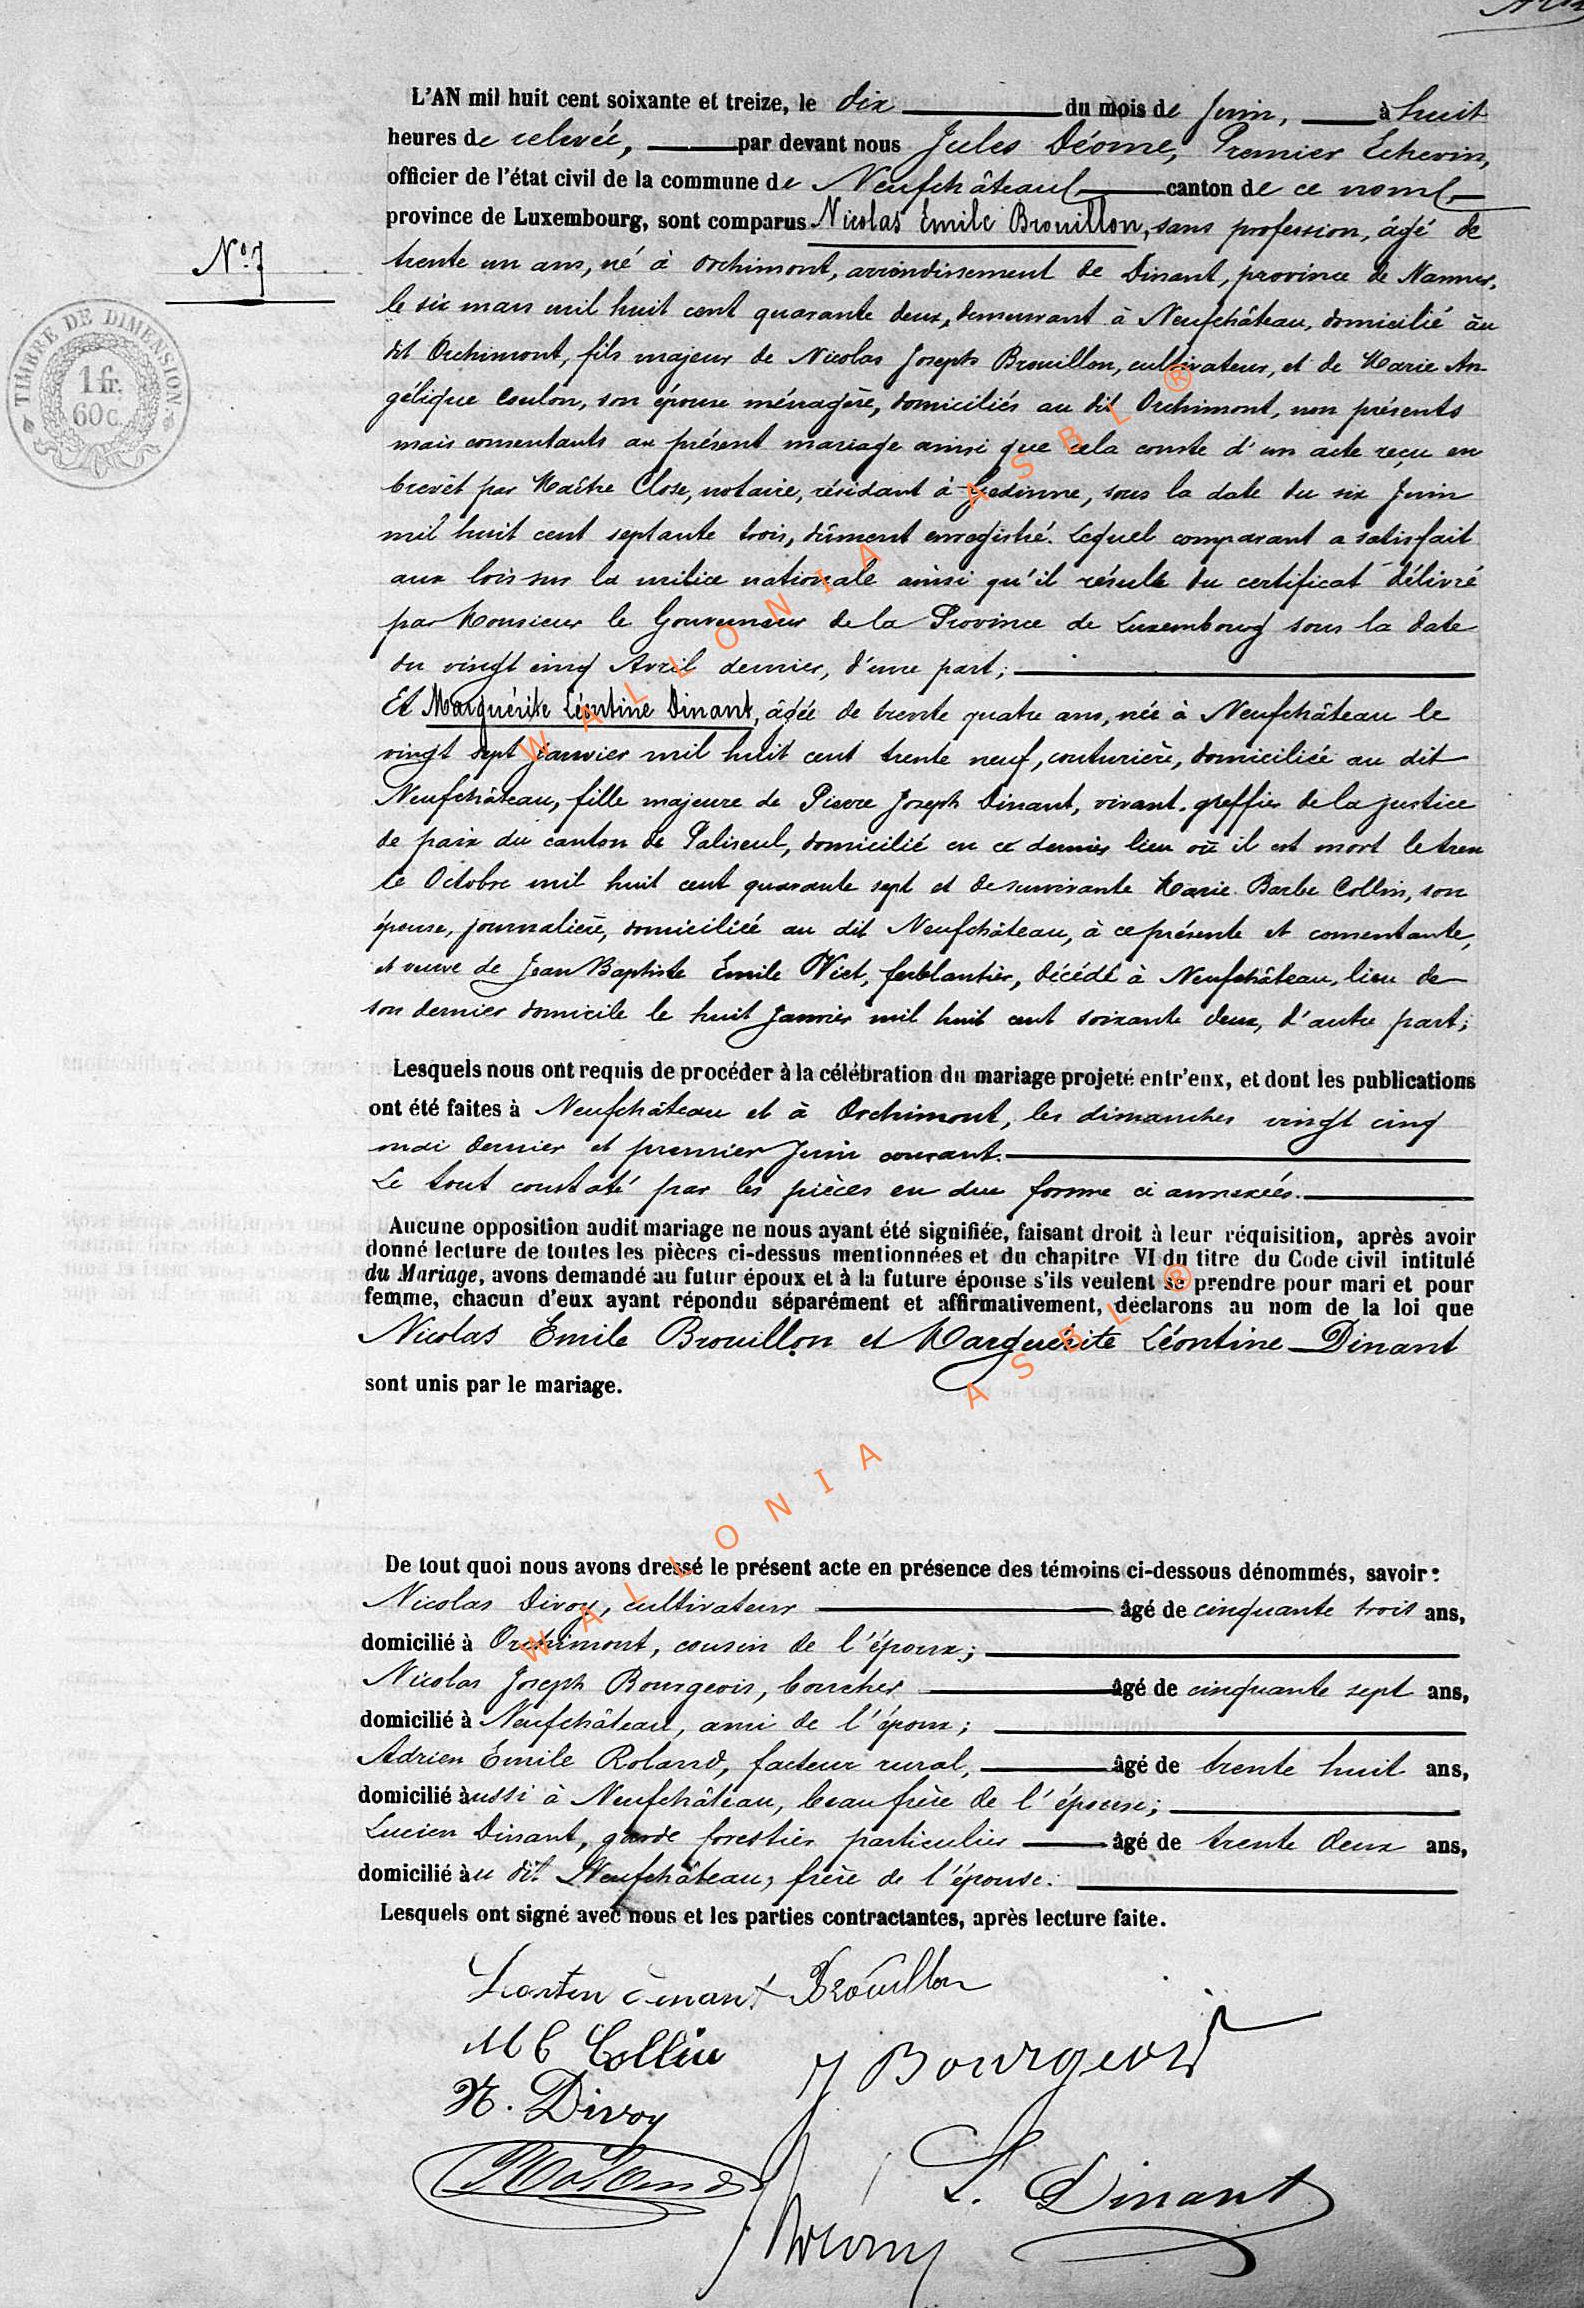 L'AN mil huit cent soixante et treize, le dix du mois de Juin, à huit
heures de relevée, par devant nous Jules Déome, Premier Echevin,
officier de l'état civil de la commune de Neufchâteau canton de ce nom
province de Luxembourg, sont comparus Nicolas Emile Brouillon, sans profession, âgé de
N° 7
trente un ans, né à Orchimont, arrondissement de Dinant, province de Namur,
le six mars mil huit cent quarante deux, demeurant à Neufchâteau, domicilié au
dit Orchimont, fils majeur de Nicolas Joseph Brouillon, cultivateur, et de Marie An
gélique Coulon, son épouse ménagère, domiciliés au dit Orchimont, non présents
mais consentants au présent mariage ainsi que cela conste d'un acte reçu en
brevêt par Maître Close, notaire, résidant à Gedinne, sous la date du six Juin
mil huit cent septante trois, dûment enregistré. Lequel comparant a satisfait
aux lois sur la milice nationale ainsi qu'il résulte du certificat délivré
par Monsieur le Gouverneur de la Province de Luxembourg sous la date
du vingt cinq Avril dernier, d'une part;
Et Marguérite Léontine Dinant, âgée de trente quatre ans, née à Neufchâteau le
vingt sept Janvier mil huit cent trente neuf, couturière, domiciliée au dit
Neufchâteau, fille majeure de Pierre Joseph Dinant, vivant greffier de la justice
de paix du canton de Paliseul, domicilié en ce dernier lieu où il est mort le tren
te Octobre mil huit cent quarante sept et de survivante Marie Barbe Collin, son
épouse, journalière, domiciliée au dit Neufchâteau, à ce présente et consentante,
et veuve de Jean Baptiste Emile Viet, ferblantier, décédé à Neufchâteau, lieu de
son dernier domicile le huit Janvier mil huit cent soixante deux, d'autre part;
Lesquels nous ont requis de procéder à la célébration du mariage projeté entr'eux, et dont les publications
ont été faites à Neufchâteau et à Orchimont, les dimanches vingt cinq
mai dernier et premier Juin courant.
Le tout constaté par les pièces en due forme ci annexées.
Aucune opposition audit mariage ne nous ayant été signifiée, faisant droit à leur réquisition, après avoir
donné lecture de toutes les pièces ci-dessus mentionnées et du chapitre VI du titre du Code civil intitulé
du Mariage, avons demandé au futur époux et à la future épouse s'ils veulent se prendre pour mari et pour
femme, chacun d'eux ayant répondu séparément et affirmativement, déclarons au nom de la loi que
Nicolas Emile Brouillon et Marguérite Léontine Dinant
sont unis par le mariage.
De tout quoi nous avons dressé le présent acte en présence des témoins ci-dessous dénommés, savoir:
Nicolas Divoy, cultivateur âgé de cinquante trois ans,
domicilié à Orchimont, cousin de l'époux;
Nicolas Joseph Bourgeois, boucher, âgé de cinquante sept ans,
domicilié à Neufchâteau, ami de l'époux;
Adrien Emile Roland, facteur rural, âgé de trente huit ans,
domicilié aussi à Neufchâteau, beau frère de l'épouse;
Lucien Dinant, garde forestier particulier âgé de trente deux ans,
domicilié au dit Neufchâteau, frère de l'épouse.
Lesquels ont signé avec nous et les parties contractantes, après lecture faite.
Brouillon
M B Collin
Bourgeois
N. Divoy
Roland
L. Dinant
TIMBRE DE DIMENSION
1 fr.
60 c.
WALLONIA ASBL ®
WALLONIA ASBL ®